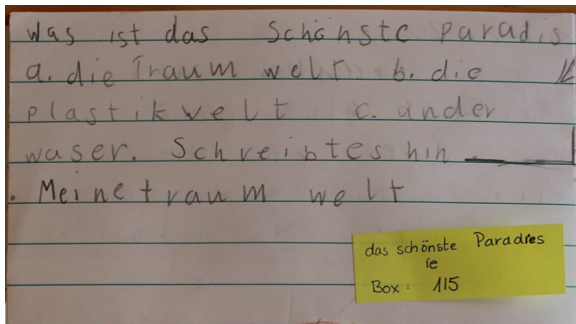 was ist das schönste paradis
a. die Traum welt b. die
plastikwelt c. under
waser. Schreibtes hin
. Meine traum welt
das schönste Paradies
ie
Box: 115